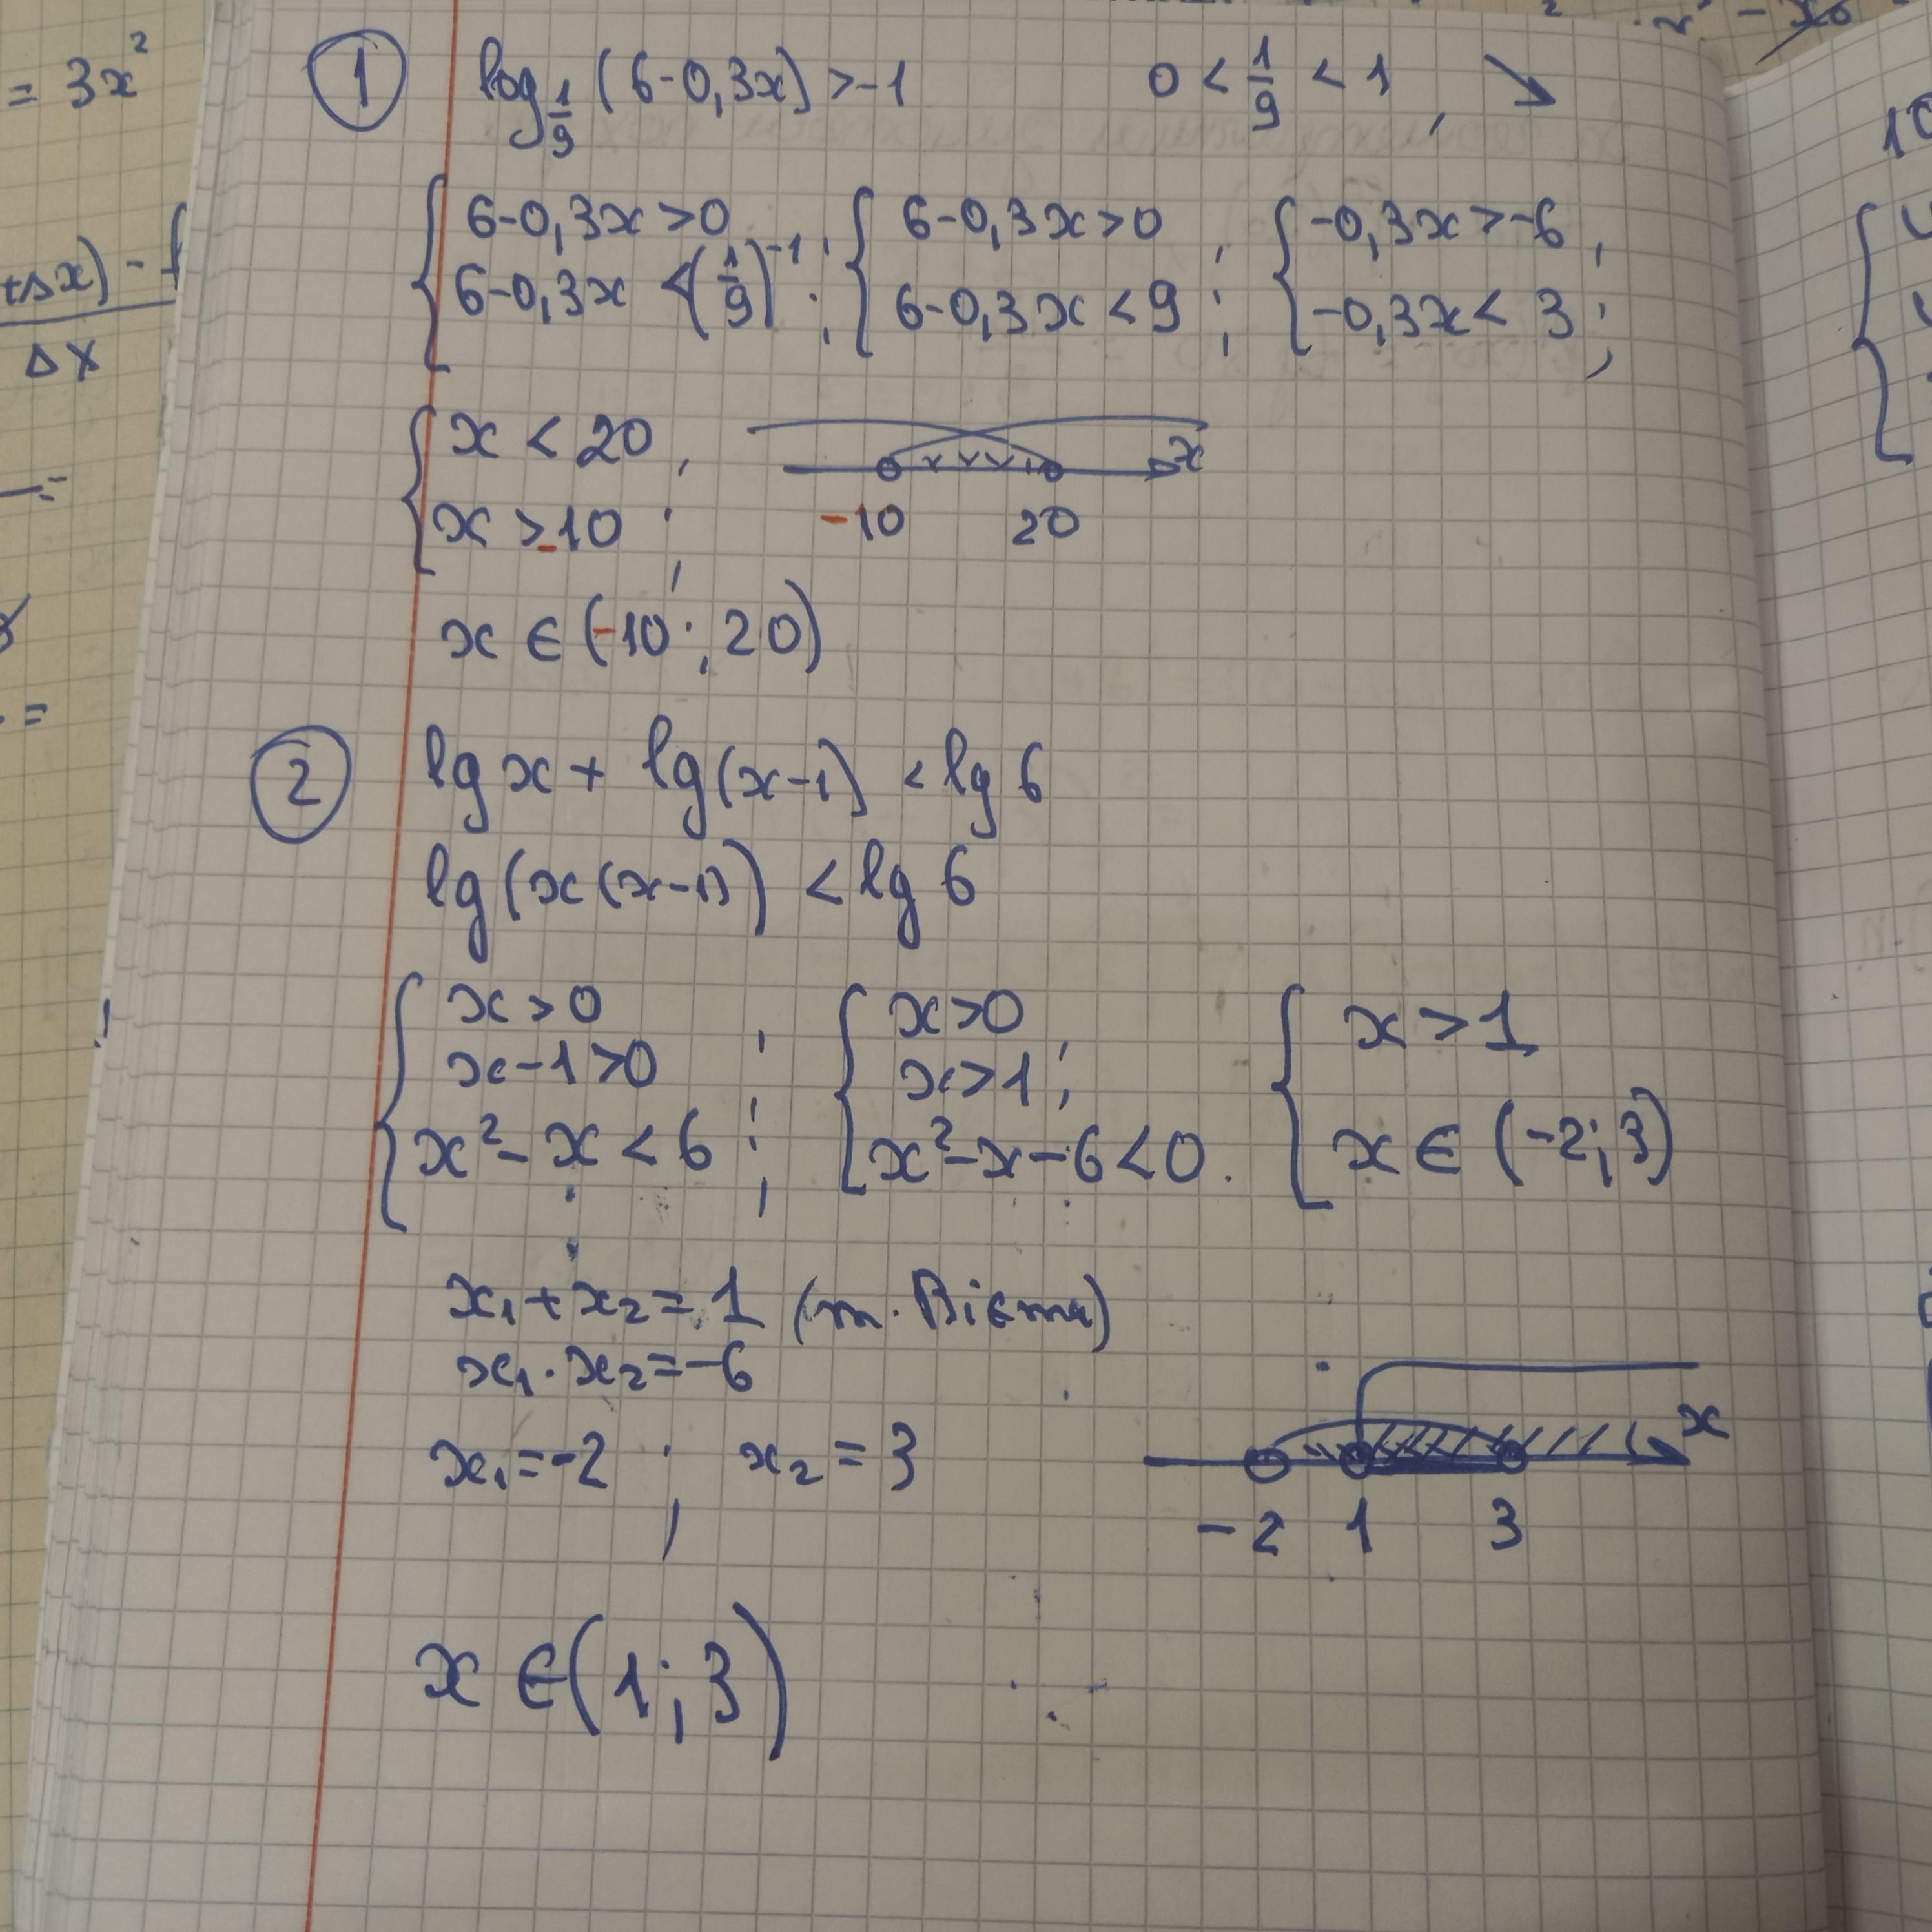 = 3x²
+Δx) - f
Δx
① log_{1/9} (6-0,3x) > -1    0 < 1/9 < 1, ↘
{ 6-0,3x>0, 6-0,3x < (1/9)^{-1}; { 6-0,3x>0, 6-0,3x<9; { -0,3x>-6, -0,3x<3;
{ x < 20, x > -10;
x
-10 20
x ∈ (-10; 20)
② lg x + lg(x-1) < lg 6
lg(x(x-1)) < lg 6
{ x>0, x-1>0; x²-x<6; { x>0 x>1; x²-x-6<0. { x>1 x ∈ (-2;3)
x₁+x₂=1 (т. Вієта)
x₁·x₂=-6
x₁=-2; x₂=3
x
-2 1 3
x ∈ (1;3)